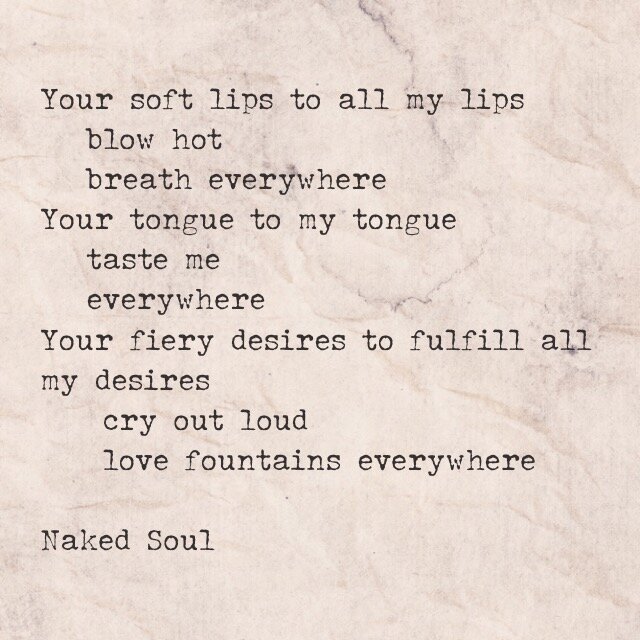 Your soft lips to all my lips
blow hot
breath everywhere
Your tongue to my tongue
taste me
everywhere
Your fiery desires to fulfill all
my desires
cry out loud
love fountains everywhere
Naked Soul